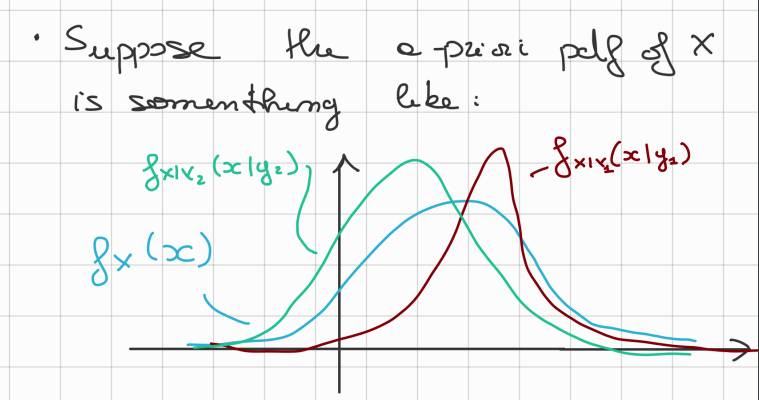 · Suppose the a-priori pdf of X
is somenthing like:
f_{X|Y_2}(x|y_2)
f_{X|Y_1}(x|y_1)
f_X(x)